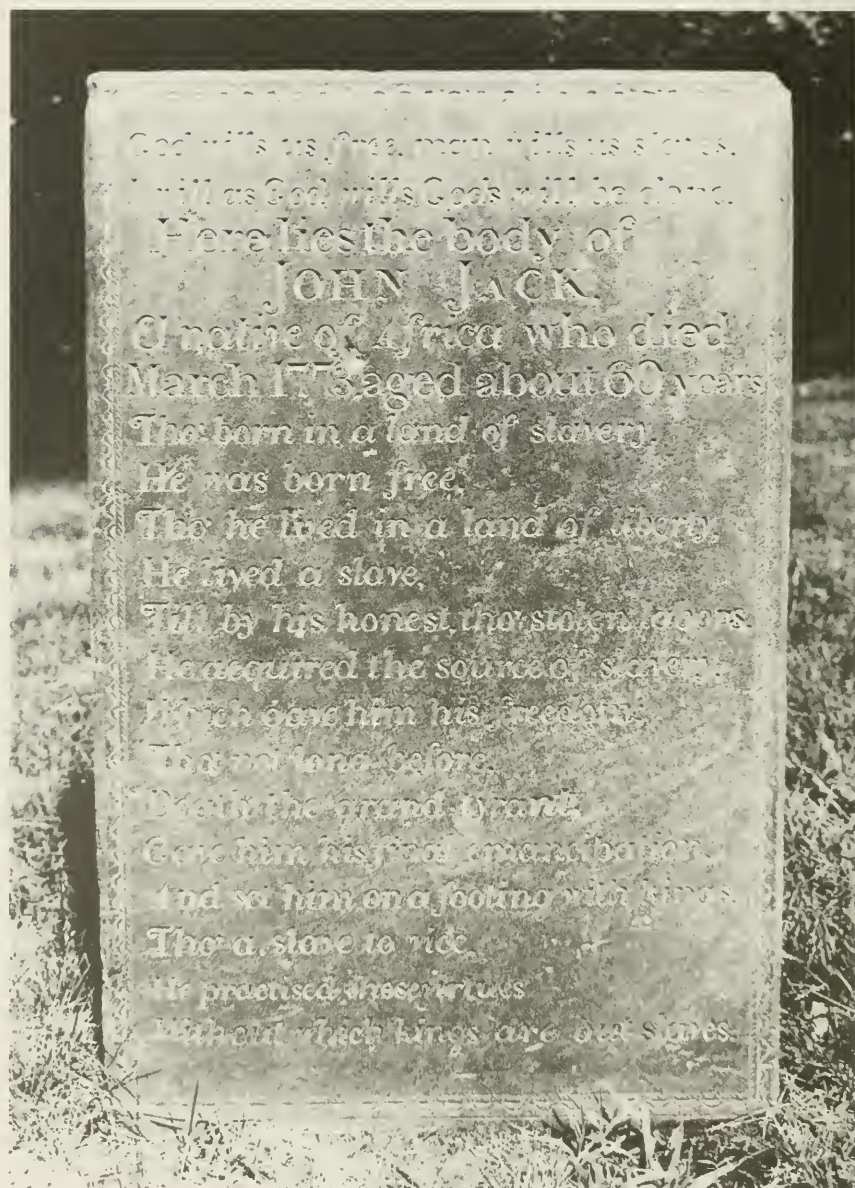 God wills us free, man wills us slaves.
I will as God wills Gods will be done.
Here lies the body of
JOHN JACK.
A native of Africa who died
March 1773 aged about 60 years
Tho' born in a land of slavery,
He was born free,
Tho' he lived in a land of liberty,
He lived a slave,
Till by his honest, tho' stolen labors,
He acquired the source of slavery,
Which gave him his freedom,
Tho' not long before,
Death the grand tyrant,
Gave him his final emancipation,
And set him on a footing with kings.
Tho' a slave to vice,
He practised those virtues
Without which kings are but slaves.